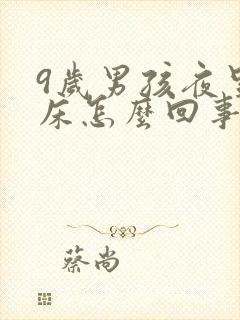 9歲男孩夜
床怎麼回事
蔡尚